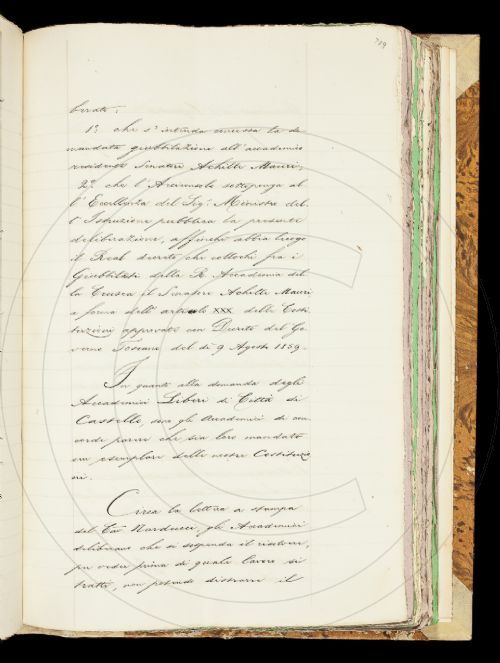 719
berato:
1º che s'intenda concessa la do
mandata giubbilazione all'accademico
residente Senatore Achille Mauri;
2º che l'Arciconsolo sottoponga al
l'Eccellenza del Sigr Ministro del
l'Istruzione pubblica la presente
deliberazione, affinchè abbia luogo
il Real decreto che collochi fra i
Giubbilati della R. Accademia del
la Crusca il Senatore Achille Mauri
a forma dell'articolo XXX delle Costi
tuzioni approvate con Decreto del Go
verno Toscano del dì 9 Agosto 1859.
In quanto alla domanda degli
Accademici Liberi di Città di
Castello, sono gli Accademici di con
corde parere che sia loro mandato
un esemplare delle nostre Costituzio
ni.
Circa la lettera a stampa
del Cav Narducci, gli Accademici
deliberano che si sospenda il risolvere,
per veder prima di quale lavoro si
tratti, non potendo distrarre il